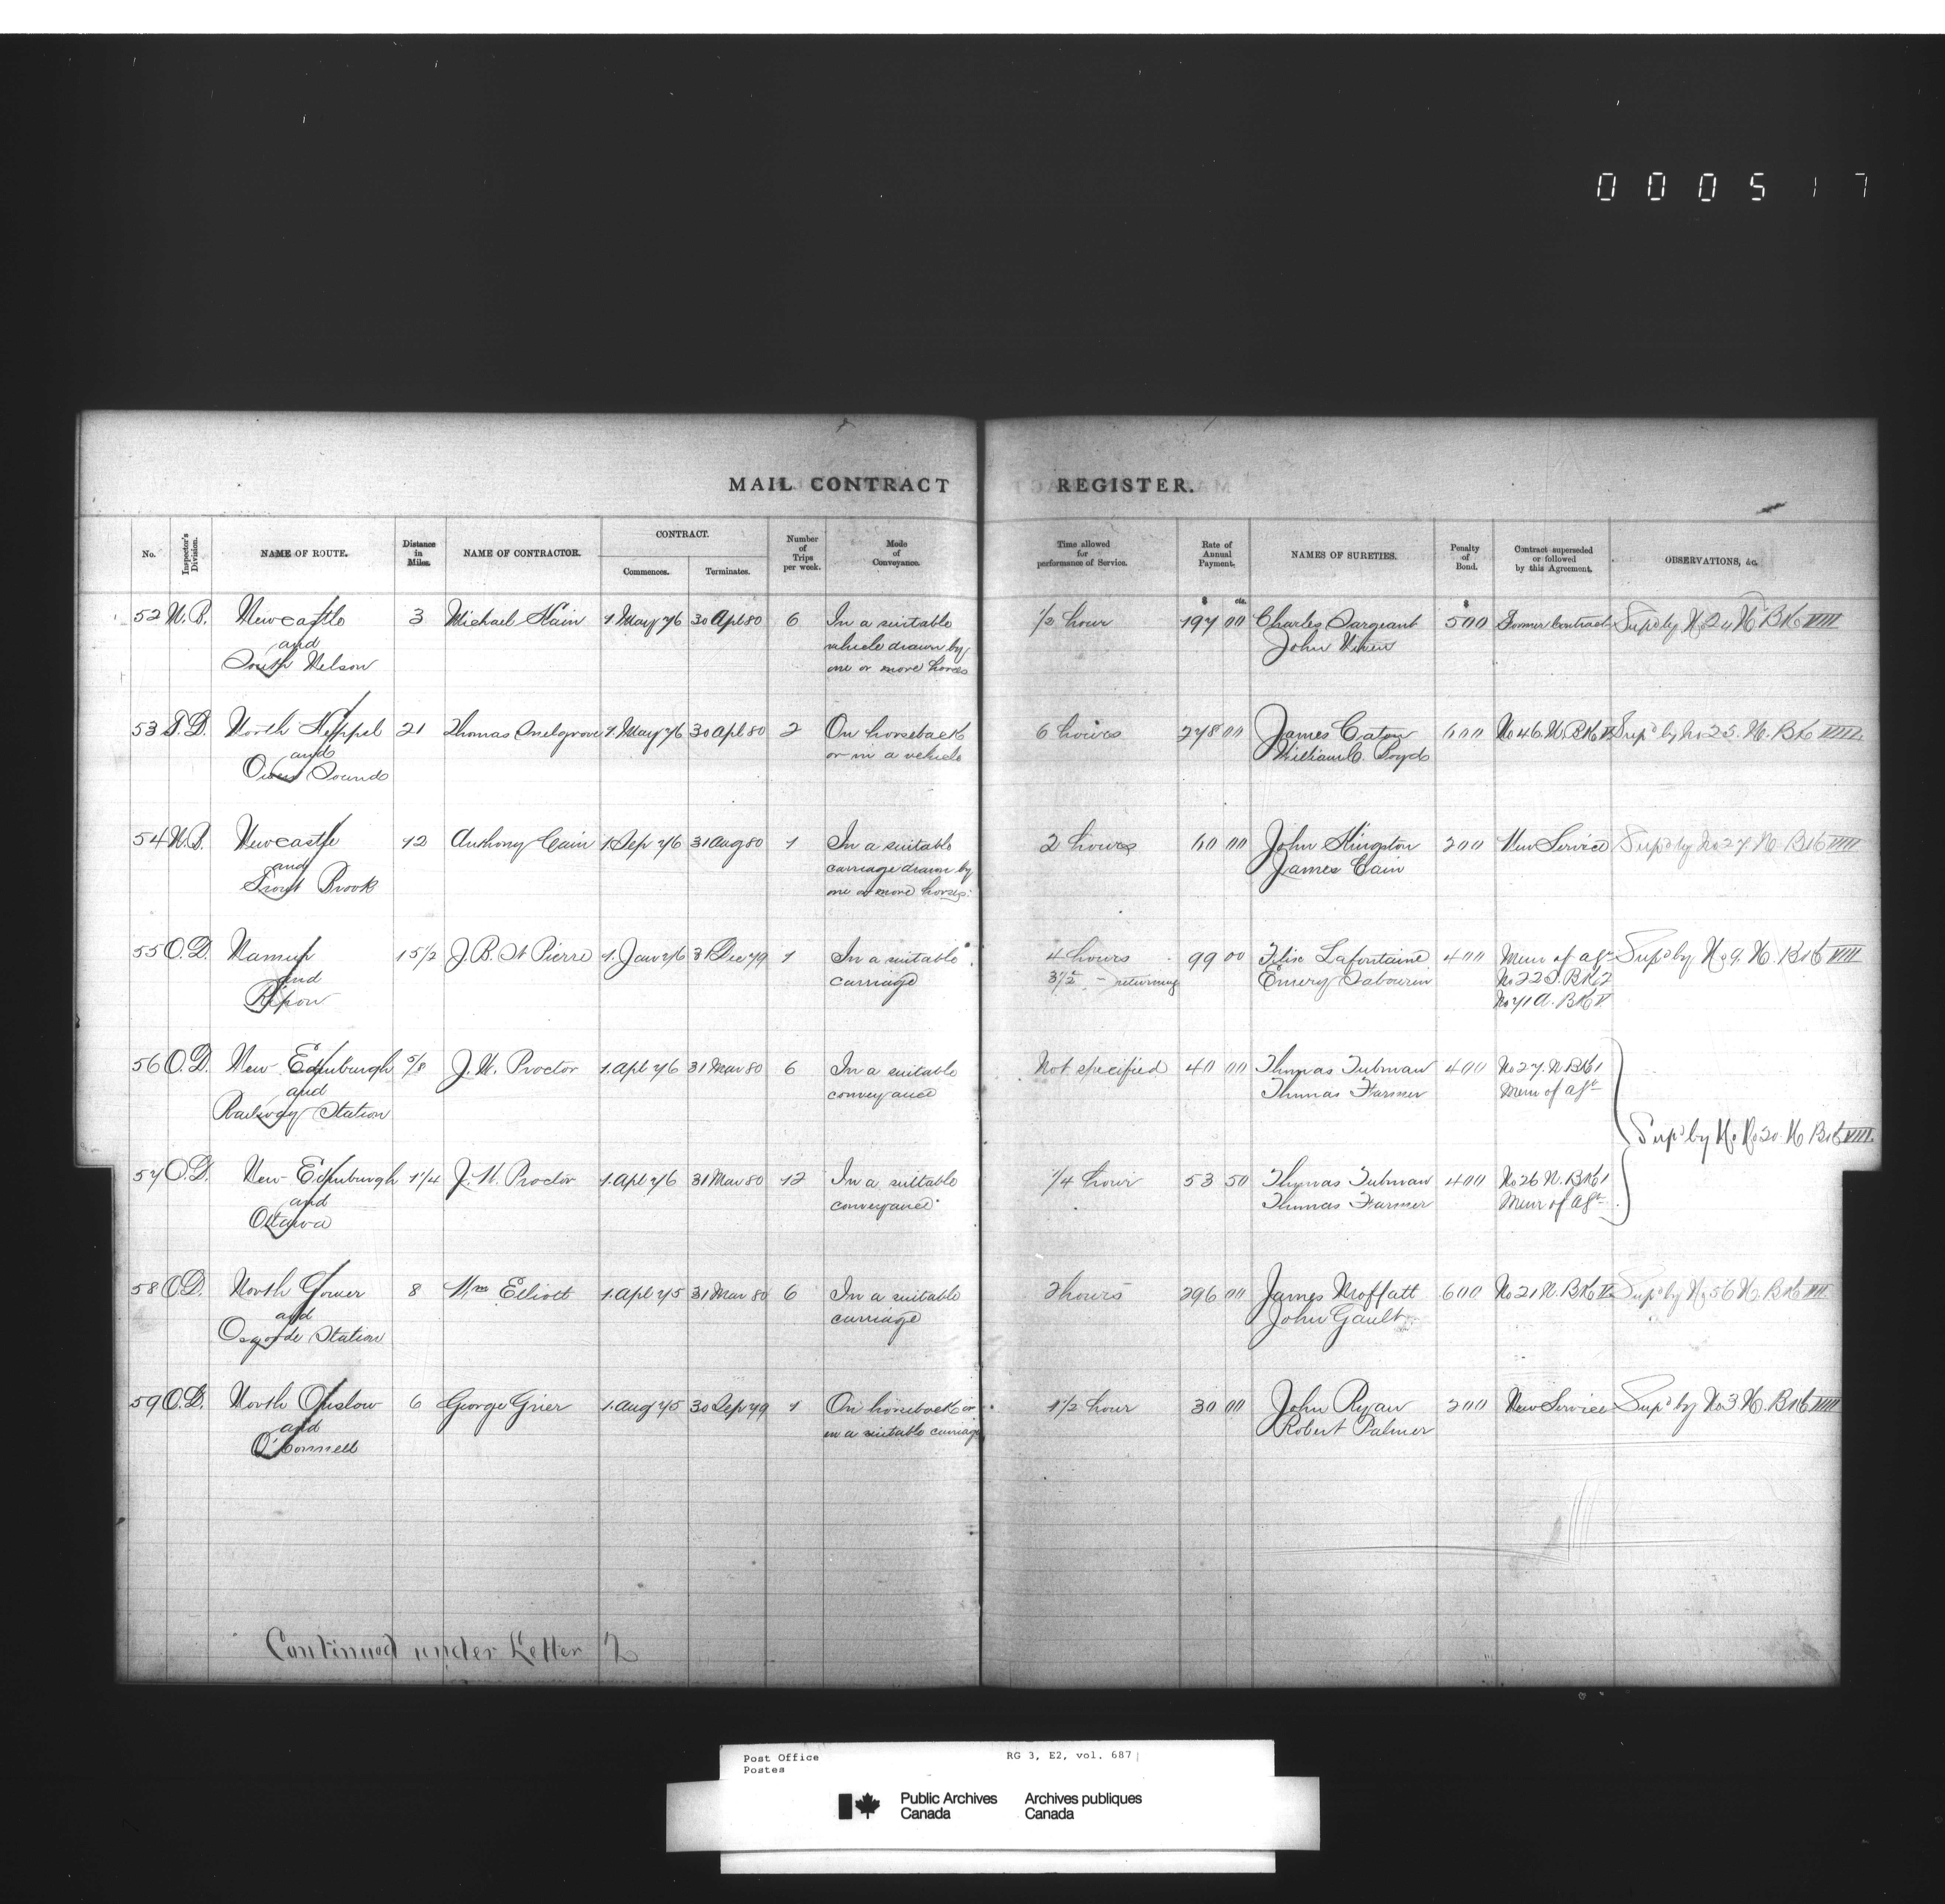 000517
MAIL CONTRACT REGISTER.
No. Inspector's Division. NAME OF ROUTE. Distance in Miles. NAME OF CONTRACTOR. CONTRACT. Commences. Terminates. Number of Trips per week. Mode of Conveyance. Time allowed for performance of Service. Rate of Annual Payment. NAMES OF SURETIES. Penalty of Bond. Contract superseded or followed by this Agreement. OBSERVATIONS, &c.
$ cts. $
52 N.B. Newcastle 3 Michael Hain 1 May 76 30 Apl 80 6 In a suitable 1/2 hour 197 00 Charles Sargeant 500 Former Contract Supd by No 24 N. Bk VIII
and vehicle drawn by John Niven
South Nelson one or more horses
53 T.D. North Keppel 21 Thomas Snelgrove 1 May 76 30 Apl 80 2 On horseback 6 hours 278 00 James Caton 600 No 46. N. Bk V Supd by No 25. N. Bk VIII.
and or in a vehicle William C. Boyd
Owen Sound
54 N.B. Newcastle 12 Anthony Cain 1 Sep 76 31 Aug 80 1 In a suitable 2 hours 60 00 John Kingston 200 New Service Supd by No 27 N. Bk VIII
and carriage drawn by James Cain
Trout Brook one or more horses.
55 O.D. Namur 15 1/2 J. B. St Pierre 1. Jan 76 31 Dec 79 1 In a suitable 4 hours 99 00 Felix Lafontaine 400 Mem of agt Supd by No 9. N. Bk VIII
and carriage 3 1/2 - returning Emery Sabourin No 22 S. Bk 2
Ripon No 71 A. Bk V
56 O.D. New Edinburgh 5/8 J. W. Proctor 1. Apl 76 31 Mar 80 6 In a suitable Not specified 40 00 Thomas Tubman 400 No 27. N. Bk 1
and conveyance Thomas Farmer Mem of agt
Railway Station
Supd by No 20. N Bk VIII.
57 O.D. New Edinburgh 1 1/4 J. W. Proctor 1. Apl 76 31 Mar 80 12 In a suitable 1/4 hour 53 50 Thomas Tubman 400 No 26 N. Bk 1
and conveyance Thomas Farmer Mem of agt
Ottawa
58 O.D. North Gower 8 Wm Elliott 1. Apl 75 31 Mar 80 6 In a suitable 2 hours 296 00 James Moffatt 600 No 21 N. Bk V Supd by No 56 N. Bk VIII
and carriage John Gault
Osgoode Station
59 O.D. North Onslow 6 George Grier 1. Aug 75 30 Sep 79 1 On horseback or 1 1/2 hour 30 00 John Ryan 200 New Service Supd by No 3 N. Bk VIII
and in a suitable carriage Robert Palmer
O'Connell
Continued under Letter
Post Office RG 3, E2, vol. 687
Postes
Public Archives Archives publiques
Canada Canada